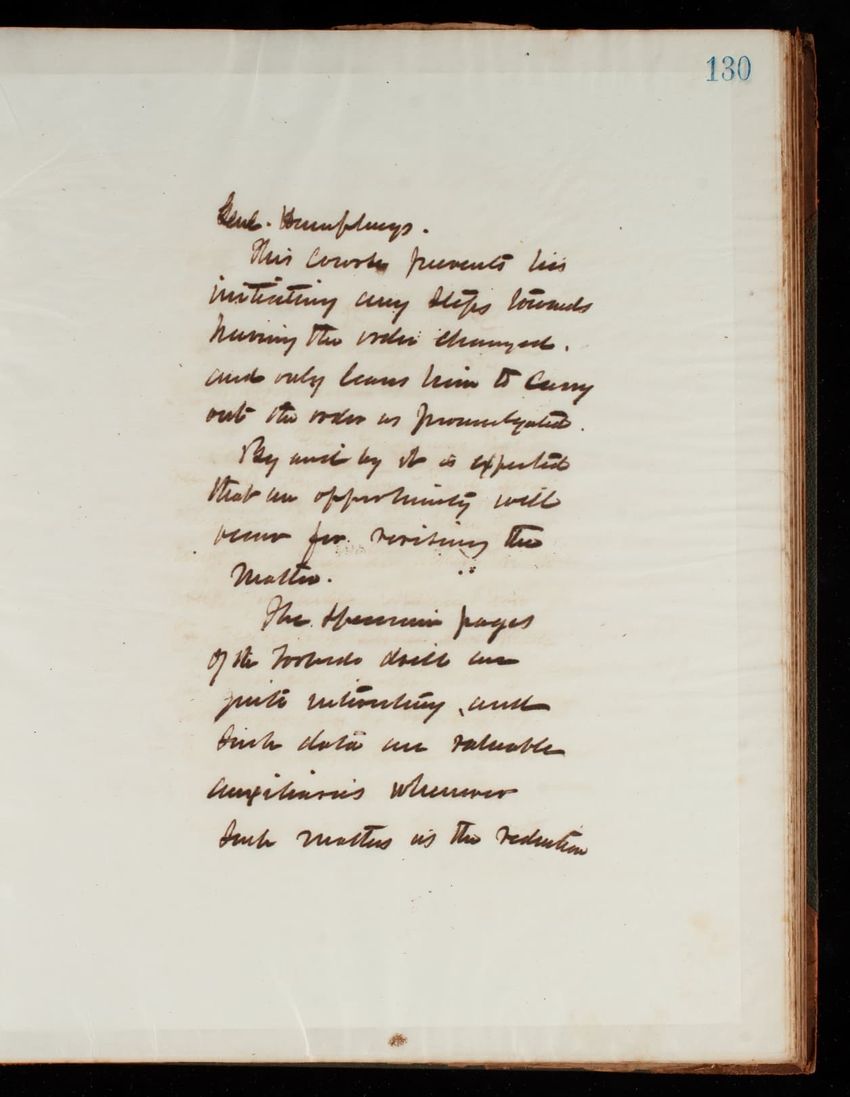 130
Genl. Humphreys.
This course prevents his
initiating any steps towards
having the order changed.
and only leaves him to carry
out the order as promulgated.
By and by it is expected
that an opportunity will
occur for revising the
matter.
The specimen pages
of the Torpedo drill are
quite interesting, and
such data are valuable
auxiliaries whenever
such matters as the reduction